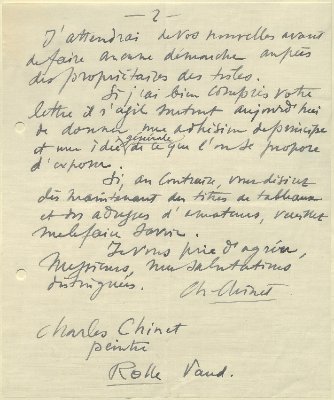 - 2 -
J'attendrai de vos nouvelles avant
de faire aucune démarche auprès
des propriétaires des toiles.
Si j'ai bien compris votre
lettre il s'agit surtout aujourd'hui
de donner une adhésion de principe
et une idée générale de ce que l'on se propose
d'exposer.
Si, au contraire, vous désirez
dès maintenant des titres de tableaux
et des adresses d'amateurs, veuillez
me le faire savoir.
Je vous prie d'agréer,
Messieurs, mes salutations
distinguées.
Ch. Chinet
Charles Chinet
peintre
Rolle Vaud.